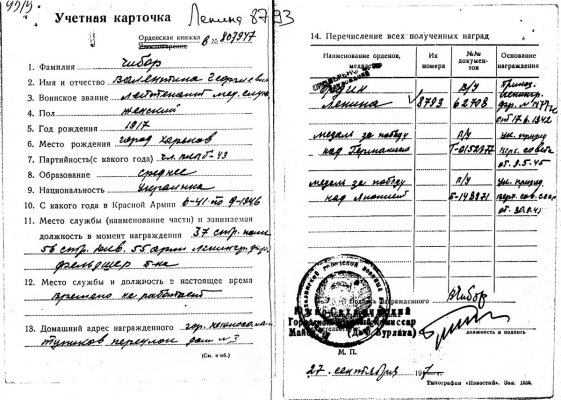 Учетная карточка
Ленина 8793
Орденская книжка
Удостоверение в № 807947
1. Фамилия Чибор
2. Имя и отчество Валентина Георгиевна
3. Воинское звание лейтенант мед. службы
4. Пол женский
5. Год рождения 1917
6. Место рождения город Харьков
7. Партийность (с какого года) чл. ВКП/б-43
8. Образование среднее
9. Национальность украинка
10. С какого года в Красной Армии 6-41 по 9-1946
11. Место службы (наименование части) и занимаемая
должность в момент награждения 37 стр. полк
56 стр. див. 55 арм. Ленингр. фр.
фельдшер б-на
12. Место службы и должность в настоящее время
временно не работает
13. Домашний адрес награжденного гор.
переулок дом № 3
(См. н/об.)
14. Перечисление всех полученных наград
Наименование орденов, медалей
Их номера
№№ документов
Основание награждения
Орден В/У
Ленина 8793 62708
от 17.6.1942
медаль за победу П/У
над Германией Т-0152977
от 9.5.45
медаль за победу П/У
над Японией
от 30.9.45
Подпись награжденного ВЧибор
Южно-Сахалинский
Городской Военный Комиссар
Майор (Бурлага)
должность и подпись
М. П.
27 сентября 194
Типография «Известий». Зак.